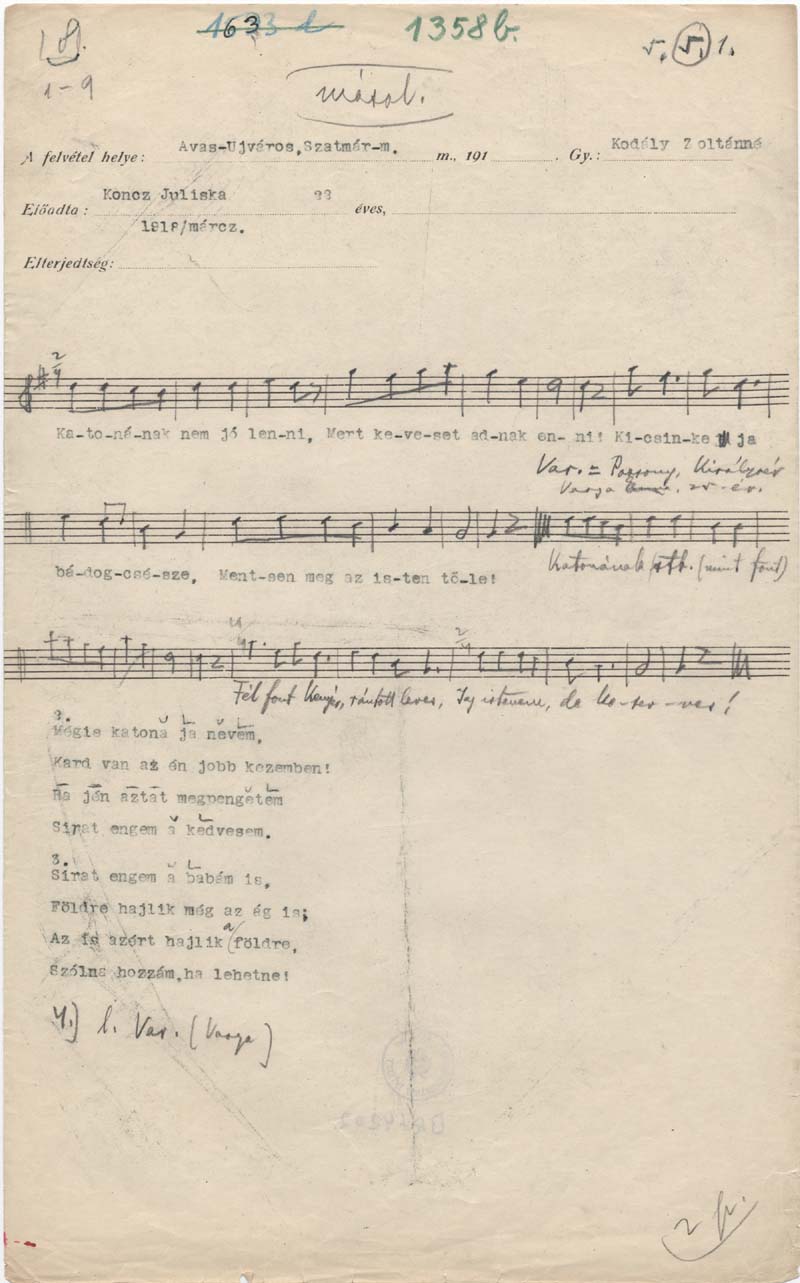 (8).
1633 b 63 1358 b. 5. 5. 1.
1-9
másol.
A felvétel helye: Avas-Ujváros, Szatmár-m. m., 191 . Gy.: Kodály Zoltánné
Előadta: Koncz Juliska éves,
1918/márcz.
Elterjedtség:
2/4
Ka-to-ná-nak nem jó len-ni, Mert ke-ve-set ad-nak en- ni! Ki-csin-ke ja
Var. = Pozsony, Királyrév
Varga
bá-dog-csé-sze, Ment-sen meg az is-ten tő-le!
Katonának stb. (mint font)
Fél font kenyér, rántott leves, Jaj istenem, de ke-ser-ves!
2.
Mégis katona ja nevem,
Kard van az én jobb kezemben!
Ha jén aztat megpengetem
Sirat engem a kedvesem.
3.
Sirat engem a babám is,
Földre hajlik még az ég is;
Az is azért hajlik a földre,
Szólna hozzám, ha lehetne!
4.) l. Var. (Varga)